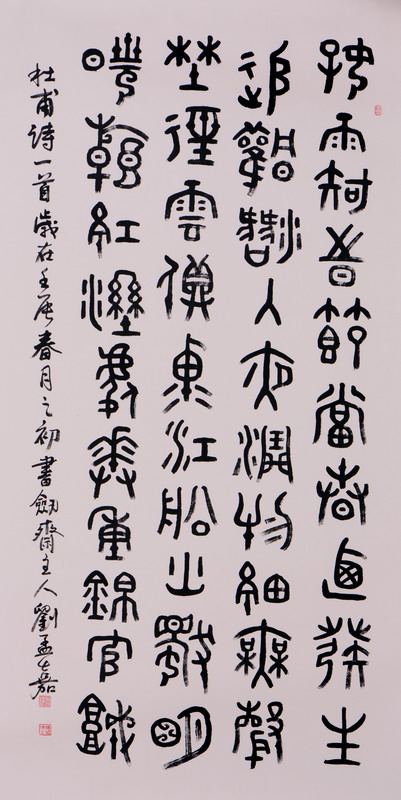 好雨知時節當春乃發生
隨風潛入夜潤物細無聲
野徑雲俱黑江船火獨明
曉看紅濕處花重錦官城
杜甫詩一首歲在壬辰春月之初書劍齋主人劉孟嘉